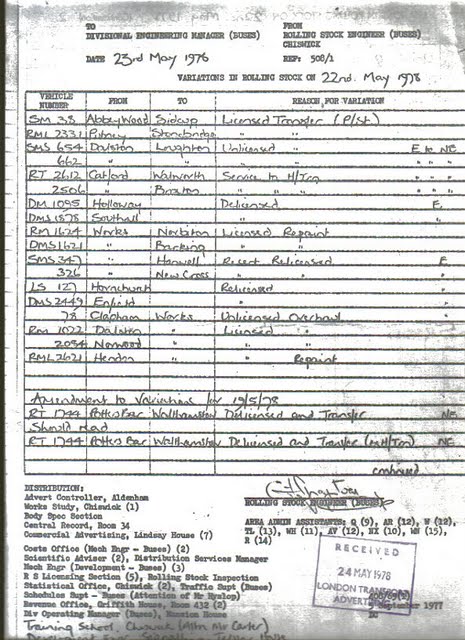 TO FROM
DIVISIONAL ENGINEERING MANAGER (BUSES) ROLLING STOCK ENGINEER (BUSES)
CHISWICK
DATE 23rd May 1978 REF: 508/1
VARIATIONS IN ROLLING STOCK ON 22nd. May 1978
VEHICLE NUMBER FROM TO REASON FOR VARIATION
SM 38 Abbey Wood Sidcup Licensed Transfer (P/St)
RML 2331 Putney Stonebridge " "
SMS 654 Dalston Loughton Unlicensed " E to NE
662 " " " " " " "
RT 2612 Catford Walworth Service to H/Trn " " "
2506 " Brixton " " " " " "
DM 1095 Holloway Delicensed E
DMS 1878 Southall " "
RM 1624 Works Norbiton Licensed Repaint
DMS 1621 " Barking " "
SMS 347 " Hanwell Recert Relicensed E
326 " New Cross " " "
LS 127 Hornchurch Relicensed "
DMS 2449 Enfield " "
78 Clapham Works Unlicensed Overhaul "
RM 1022 Dalston " Licensed "
2094 Norwood " " "
RML 2621 Hendon " " Repaint
Amendment to Variations for 19/5/78
RT 1744 Potters Bar Walthamstow Delicensed and Transfer NE
Should Read
RT 1744 Potters Bar Walthamstow Delicensed and Transfer (as H/Trn) NE
continued
DISTRIBUTION:
Advert Controller, Aldenham
Works Study, Chiswick (1)
Body Spec Section
Central Record, Room 34
Commercial Advertising, Lindsay House (7)
Costs Office (Mech Engr - Buses) (2)
Scientific Adviser (2), Distribution Services Manager
Mech Engr (Development - Buses) (3)
R S Licensing Section (5), Rolling Stock Inspection
Statistical Office, Chiswick (2), Traffic Supt (Buses)
Schedules Supt - Buses (Attention of Mr Hyslop)
Revenue Office, Griffith House, Room 432 (2)
Div Operating Manager (Buses), Mansion House
Training School, Chiswick (Attn Mr Carter)
ROLLING STOCK ENGINEER (BUSES)
AREA ADMIN ASSISTANTS: Q (9), AR (12), W (12),
TL (13), WH (11), AV (12), NX (10), WN (15),
R (14)
RECEIVED
24 MAY 1978
LONDON TRANSPORT
September 1977